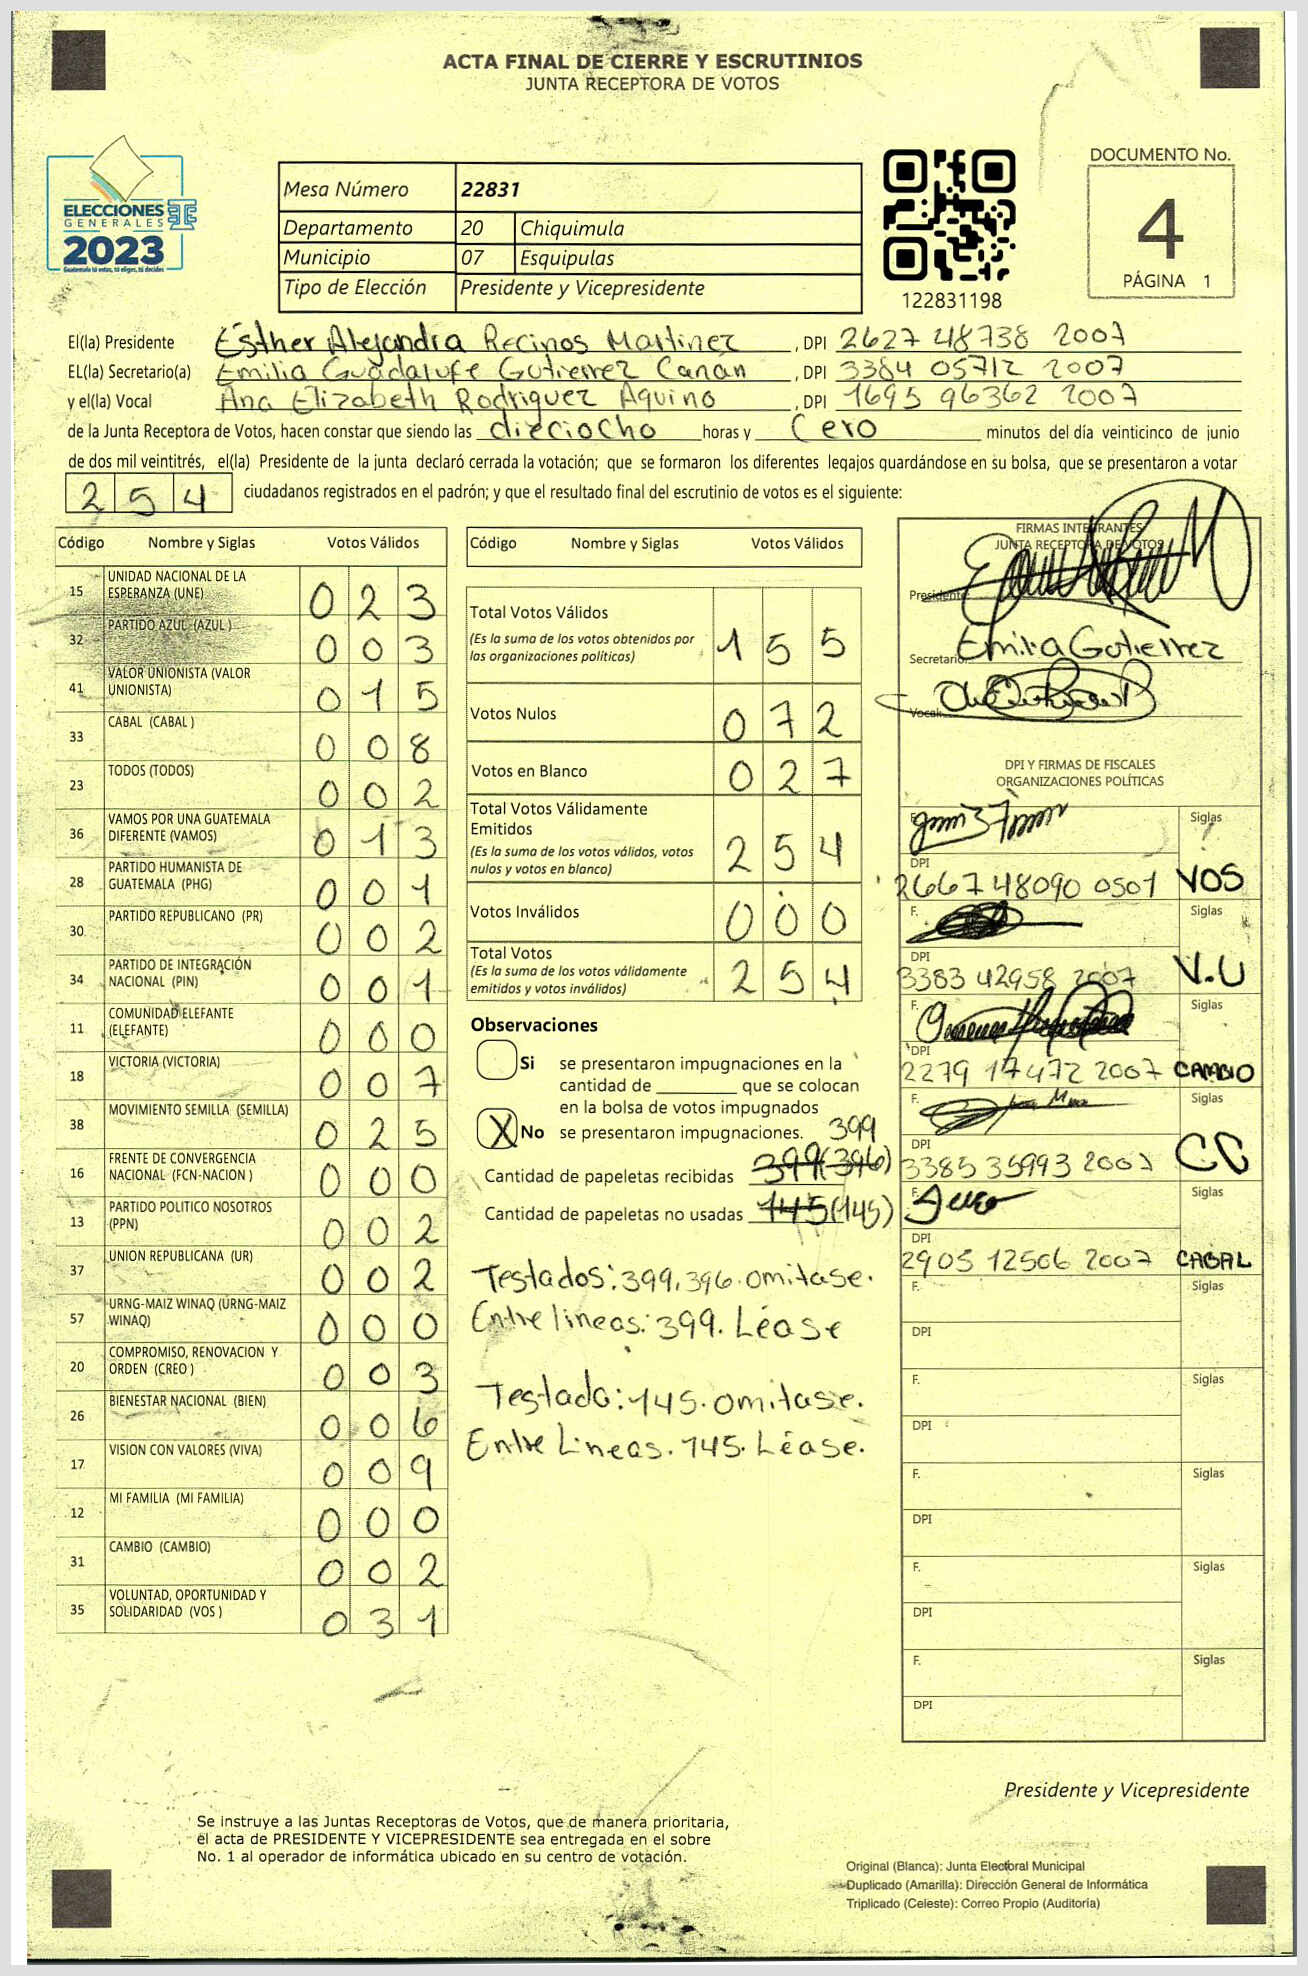 ACTA FINAL DE CIERRE Y ESCRUTINIOS
JUNTA RECEPTORA DE VOTOS
ELECCIONES
GENERALES
2023
Guatemala tú votas, tú eliges, tú decides
Mesa Número 22831
Departamento 20 Chiquimula
Municipio 07 Esquipulas
Tipo de Elección Presidente y Vicepresidente
122831198
DOCUMENTO No.
4
PÁGINA 1
El(la) Presidente Esther Alejandra Recinos Martinez, DPI 2627 48738 2007
EL(la) Secretario(a) Emilia Guadalupe Gutierrez Canan, DPI 3384 05712 2007
y el(la) Vocal Ana Elizabeth Rodriguez Aquino, DPI 1695 96362 2007
de la Junta Receptora de Votos, hacen constar que siendo las dieciocho horas y Cero minutos del día veinticinco de junio
de dos mil veintitrés, el(la) Presidente de la junta declaró cerrada la votación; que se formaron los diferentes legajos quardándose en su bolsa, que se presentaron a votar
254 ciudadanos registrados en el padrón; y que el resultado final del escrutinio de votos es el siguiente:
Código Nombre y Siglas Votos Válidos
15 UNIDAD NACIONAL DE LA ESPERANZA (UNE) 023
32 PARTIDO AZUL (AZUL ) 003
41 VALOR UNIONISTA (VALOR UNIONISTA) 015
33 CABAL (CABAL ) 008
23 TODOS (TODOS) 002
36 VAMOS POR UNA GUATEMALA DIFERENTE (VAMOS) 013
28 PARTIDO HUMANISTA DE GUATEMALA (PHG) 001
30 PARTIDO REPUBLICANO (PR) 002
34 PARTIDO DE INTEGRACIÓN NACIONAL (PIN) 001
11 COMUNIDAD ELEFANTE (ELEFANTE) 000
18 VICTORIA (VICTORIA) 007
38 MOVIMIENTO SEMILLA (SEMILLA) 025
16 FRENTE DE CONVERGENCIA NACIONAL (FCN-NACION ) 000
13 PARTIDO POLITICO NOSOTROS (PPN) 002
37 UNION REPUBLICANA (UR) 002
57 URNG-MAIZ WINAQ (URNG-MAIZ WINAQ) 000
20 COMPROMISO, RENOVACION Y ORDEN (CREO ) 003
26 BIENESTAR NACIONAL (BIEN) 006
17 VISION CON VALORES (VIVA) 009
12 MI FAMILIA (MI FAMILIA) 000
31 CAMBIO (CAMBIO) 002
35 VOLUNTAD, OPORTUNIDAD Y SOLIDARIDAD (VOS ) 031
Código Nombre y Siglas Votos Válidos
Total Votos Válidos 155
(Es la suma de los votos obtenidos por
las organizaciones políticas)
Votos Nulos 072
Votos en Blanco 027
Total Votos Válidamente
Emitidos 254
(Es la suma de los votos válidos, votos
nulos y votos en blanco)
Votos Inválidos 000
Total Votos 254
(Es la suma de los votos válidamente
emitidos y votos inválidos)
Observaciones
Si se presentaron impugnaciones en la
cantidad de ________ que se colocan
en la bolsa de votos impugnados
X No se presentaron impugnaciones. 399
Cantidad de papeletas recibidas 399(396)
Cantidad de papeletas no usadas 145(145)
Testados: 399, 396. omitase.
Entre lineas: 399. Léase
Testado: 145. omitase.
Entre Lineas. 145. Léase.
FIRMAS INTEGRANTES
JUNTA RECEPTORA DE VOTOS
Presidente
Secretario Emilia Gutierrez
Vocal
DPI Y FIRMAS DE FISCALES
ORGANIZACIONES POLÍTICAS
F. Siglas
DPI 2667 48090 0501 VOS
F. Siglas
DPI 3383 42958 2007 V.U
F. Siglas
DPI 2279 17472 2007 CAMBIO
F. Siglas
DPI 3385 35993 2007 CC
F. Siglas
DPI 2905 12506 2007 CABAL
F. Siglas
DPI
F. Siglas
DPI
F. Siglas
DPI
F. Siglas
DPI
F. Siglas
DPI
Presidente y Vicepresidente
Se instruye a las Juntas Receptoras de Votos, que de manera prioritaria,
el acta de PRESIDENTE Y VICEPRESIDENTE sea entregada en el sobre
No. 1 al operador de informática ubicado en su centro de votación.
Original (Blanca): Junta Electoral Municipal
Duplicado (Amarilla): Dirección General de Informática
Triplicado (Celeste): Correo Propio (Auditoría)